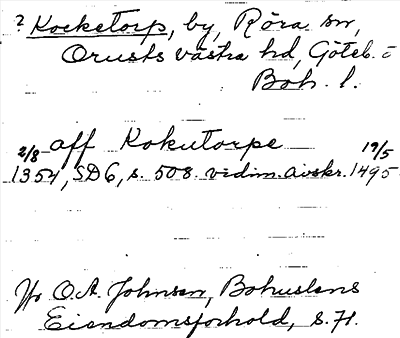 ? Kocketorp, by, Röra sn,
Orusts västra hd, Göteb. o
Boh. l.
aff Kokutorpe
2/8 1354, SD6, s. 508 vidim. avskr. 19/5 1495
Jfr O.A. Johnsen, Bohusläns
Eiendomsforhold, s. 71.